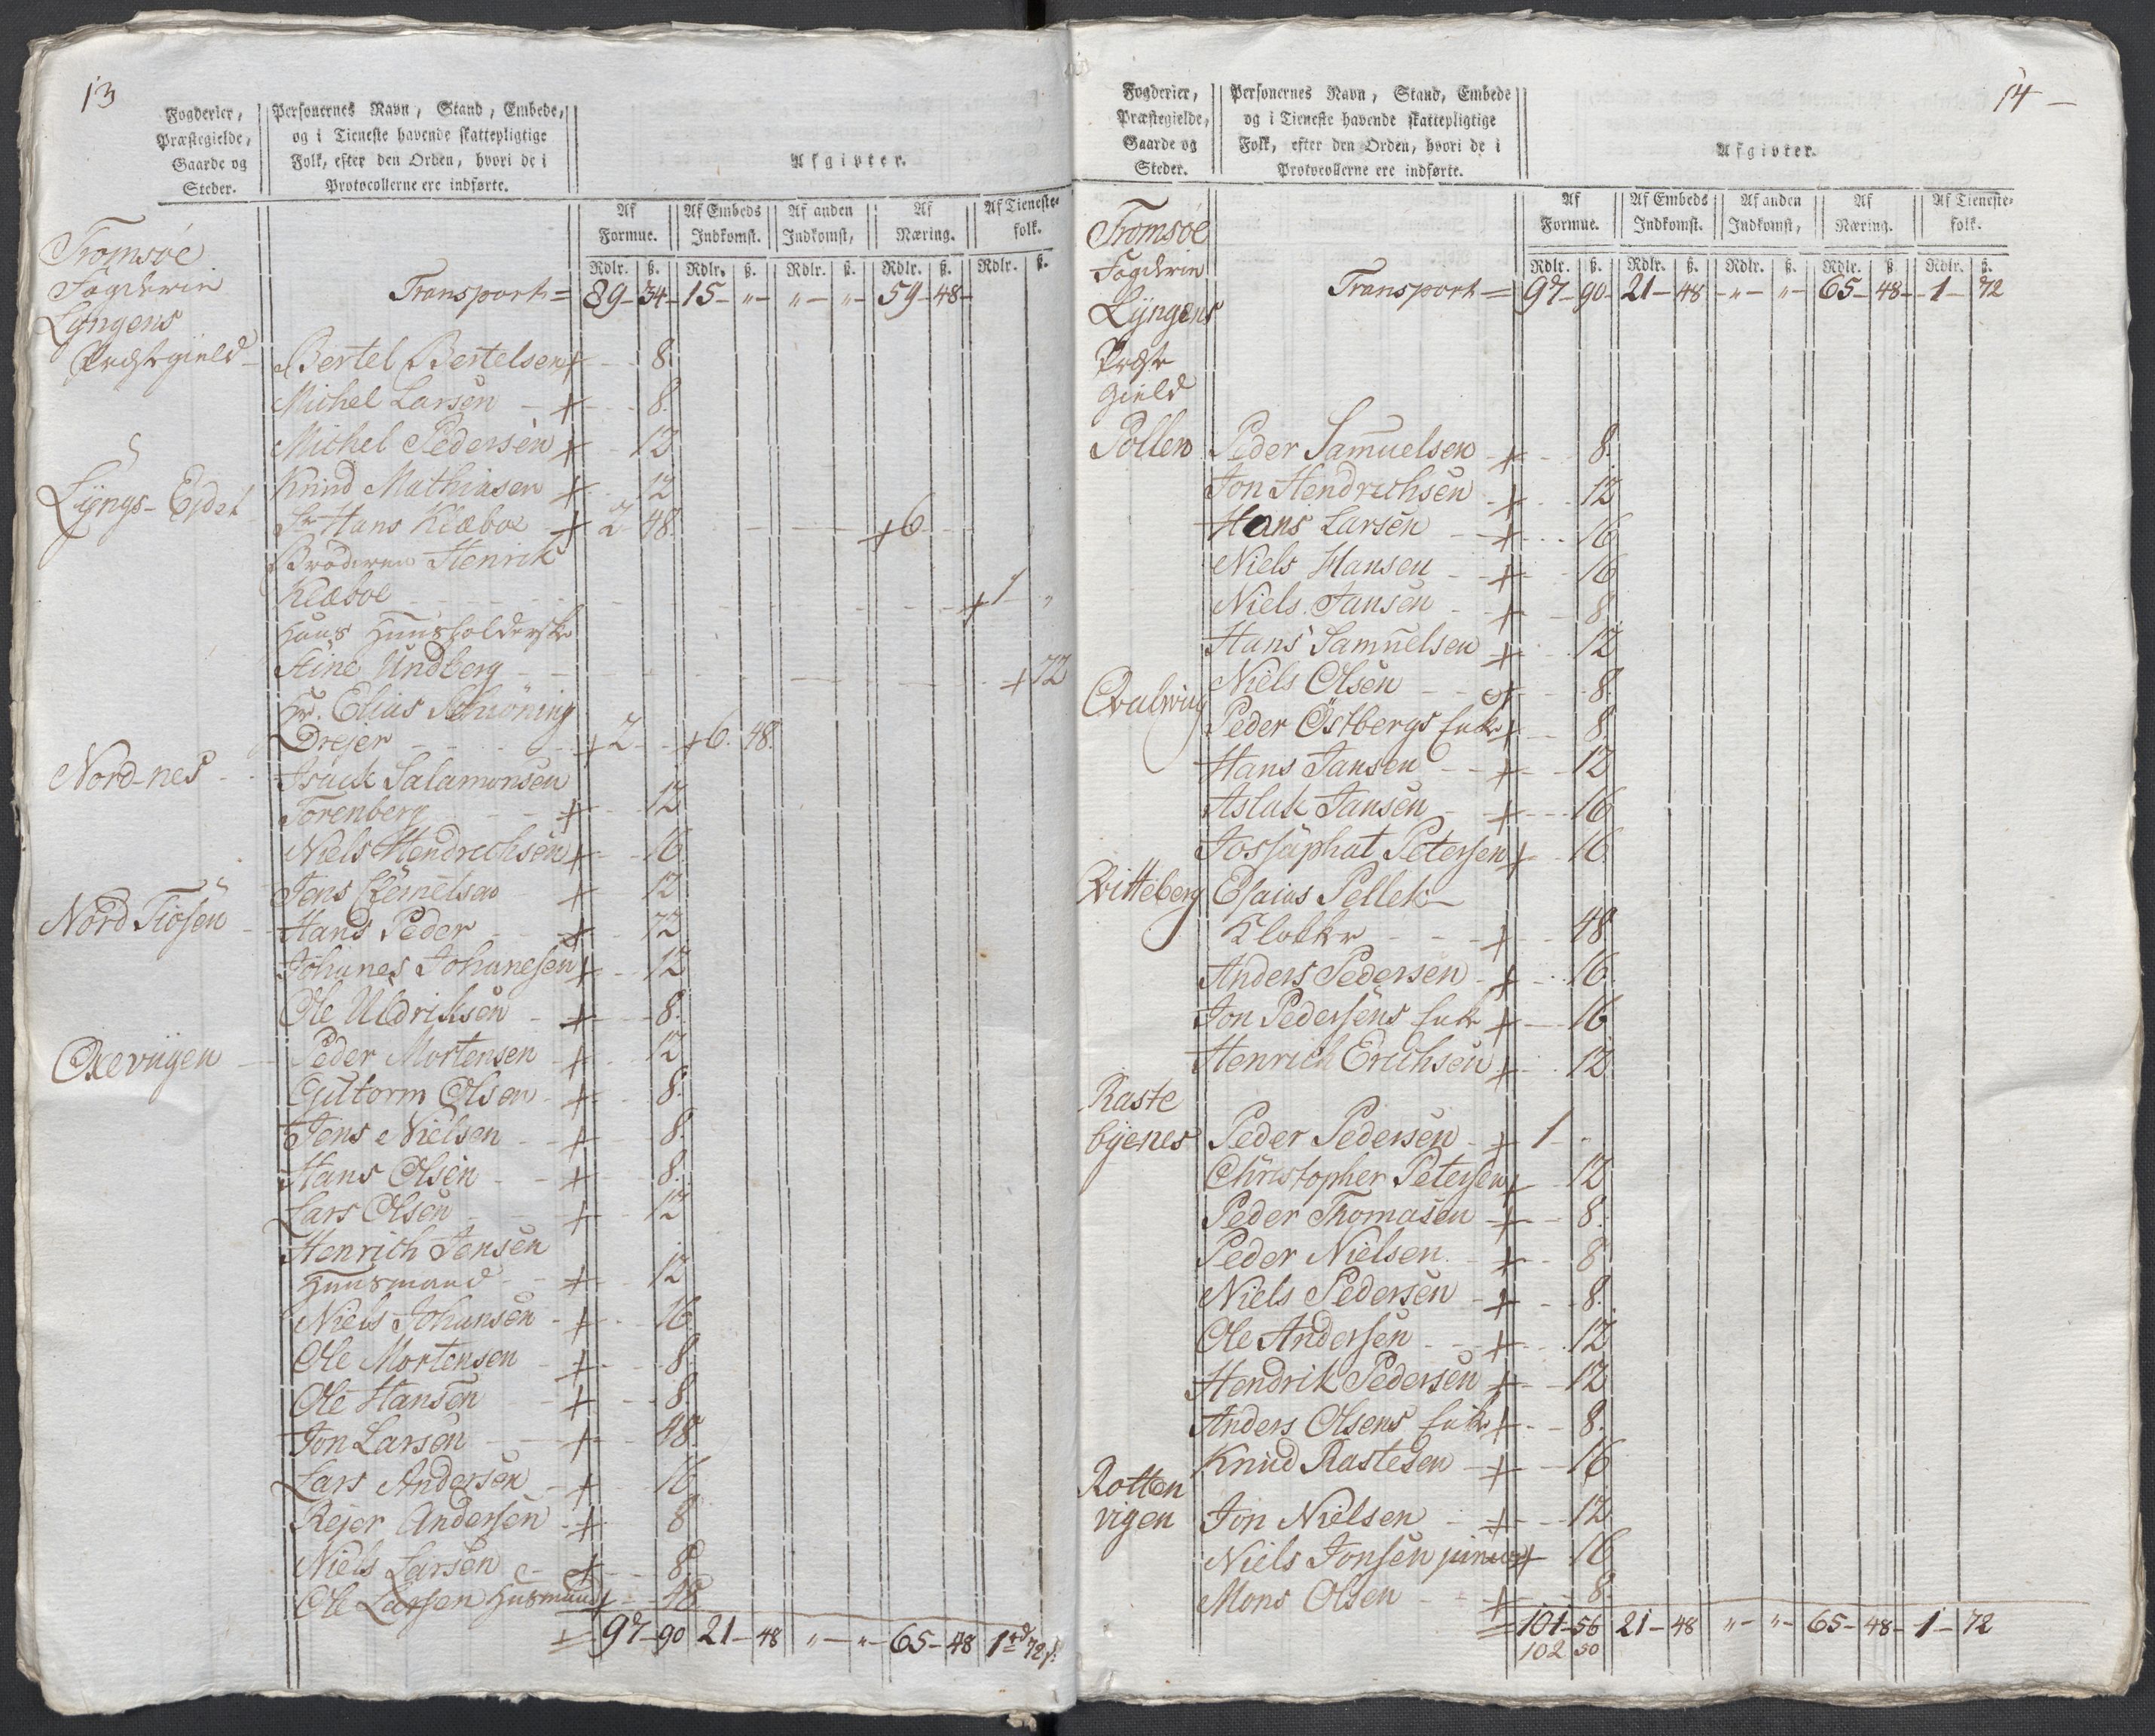 13
Fogderier, Præstegielde, Gaarde og Steder.
Personernes Navn, Stand, Embede, og i Tieneste havende skattepligtige Folk, efter den Orden, hvori de i Protocollerne ere indførte.
Afgivter.
Af Formue. Af Embeds Indkomst. Af anden Indkomst, Af Næring. Af Tieneste-folk.
Rdlr. ß. Rdlr. ß. Rdlr. ß. Rdlr. ß. Rdlr. ß.
Tromsøe
Fogderie
Lyngens
Præstegield
Transport = 89 - 34 - 15 - " - " - " - 59 - 48 -
Bertel Bertelsen + 8.
Michel Larsen + 8.
Michel Pedersen + 12
Lyngs-Eidet Knud Mathiasen + 12
Sr Hans Klæboe + 2 48. + 6.
Broderen Henrik
Klæboe + 1 "
Hans Huusholderske
Stine Undberg + 72
Hr. Elias Schiöning
Drejer + 2 + 6. 48.
Nord-nes Isack Salamonsen
Torenberg + 12
Niels Hendrichsen + 16.
Jens + 12
Nord Fiosen Hans Peder + 72
Johanes Johanesen + 12
Ole Uldriksen + 8.
Oxevigen Peder Mortensen + 12
Guttorm Olsen + 8.
Jens Nielsen + 8.
Hans Olsen + 8.
Lars Olsen + 12
Henrich Jensen
Huusmand + 12
Niels Johansen + 16.
Ole Mortensen + 8.
Ole Hansen + 8.
Jon Larsen + 48.
Lars Andersen + 16.
Rejer Andersen + 8
Niels Larsen + 8.
Ole Larsen Husmand + 48.
= 97 - 90 21 - 48 " - " - 65 - 48 1 rd 72 s.
14
Fogderier, Præstegielde, Gaarde og Steder.
Personernes Navn, Stand, Embede og i Tieneste havende skattepligtige Folk, efter den Orden, hvori de i Protocollerne ere indførte.
Afgivter.
Af Formue. Af Embeds Indkomst. Af anden Indkomst, Af Næring. Af Tieneste-folk.
Rdlr. ß. Rdlr. ß. Rdlr. ß. Rdlr. ß. Rdlr. ß.
Tromsøe
Fogderie
Lyngens
Præste
Gield
Transport = 97 - 90 - 21 - 48 - " - " - 65 - 48 - 1 - 72
Pollen Peder Samuelsen + 8.
Jon Hendrichsen + 12
Hans Larsen + 16
Niels Hansen + 16
Niels Jansen + 8
Hans Samuelsen + 12
Niels Olsen + 8.
Qvalwiig Peder Östbergs Enke + 8
Hans Jansen + 12
Aslak Jansen + 16
Jossaphat Petersen + 16.
Qvitteberg Esaias Pellek
Klokker + 48
Anders Pedersen + 16.
Jon Pedersens Enke + 16
Henrich Erichsen + 12
Raste
byenes Peder Pedersen + 1 -
Christopher Petersen + 12
Peder Thomasen + 8.
Peder Nielsen + 8
Niels Pedersen + 8.
Ole Andersen + 12
Hendrik Pedersen + 12
Anders Olsens Enke + 8.
Knud Rastesen + 16
Rotten
vigen Jon Nielsen + 12
Niels Jonsen junior + 16
Mons Olsen + 8
= 101 - 56 21 - 48 " - " - 65 - 48 - 1 - 72
102 50